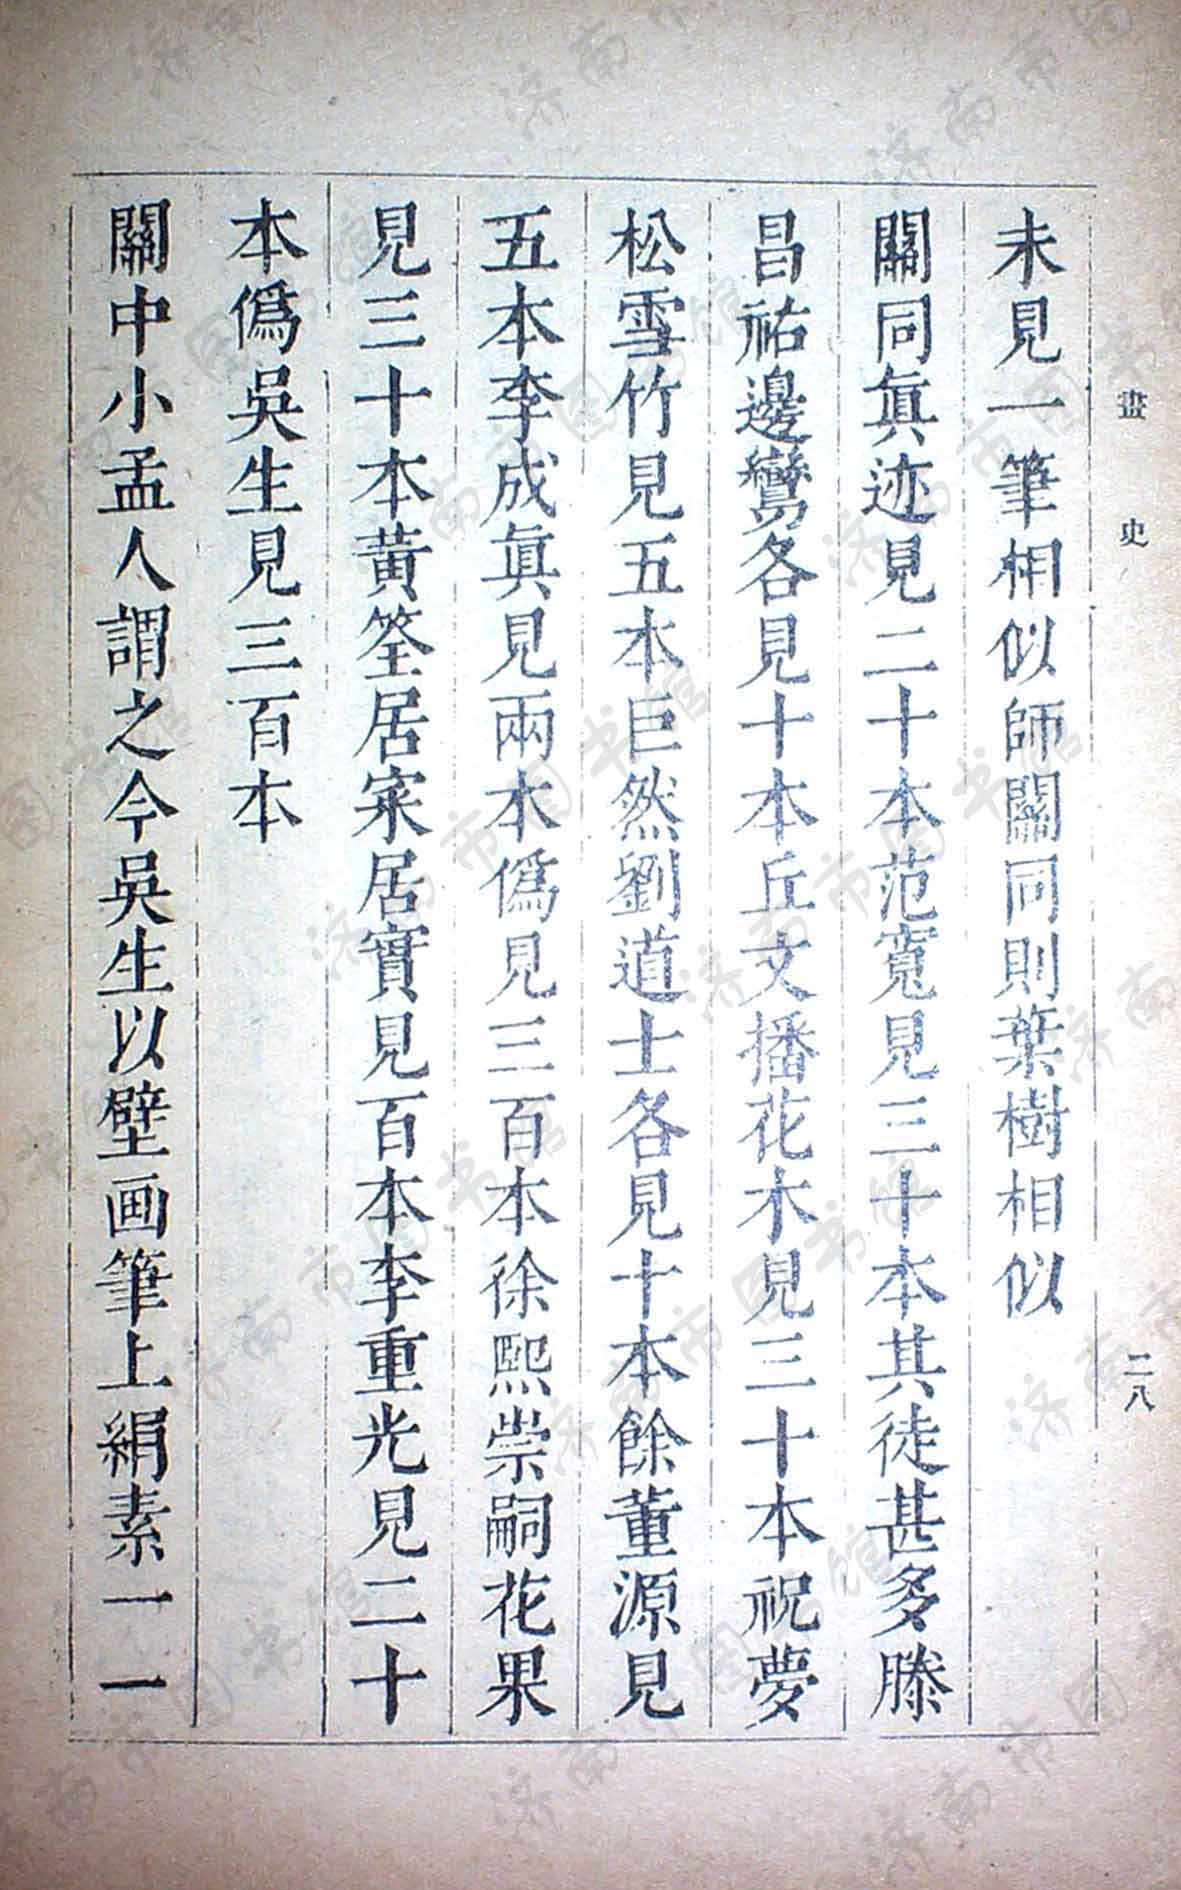 畫史
二八
未見一筆相似師關同則葉樹相似
關同眞迹見二十本范寬見三十本其徒甚多滕
昌祐邊鸞各見十本丘文播花木見三十本祝夢
松雪竹見五本巨然劉道士各見十本餘董源見
五本李成眞見兩本僞見三百本徐熙崇嗣花果
見三十本黃筌居寀居實見百本李重光見二十
本僞吳生見三百本
關中小孟人謂之今吳生以壁画筆上絹素一一
济南市图书馆